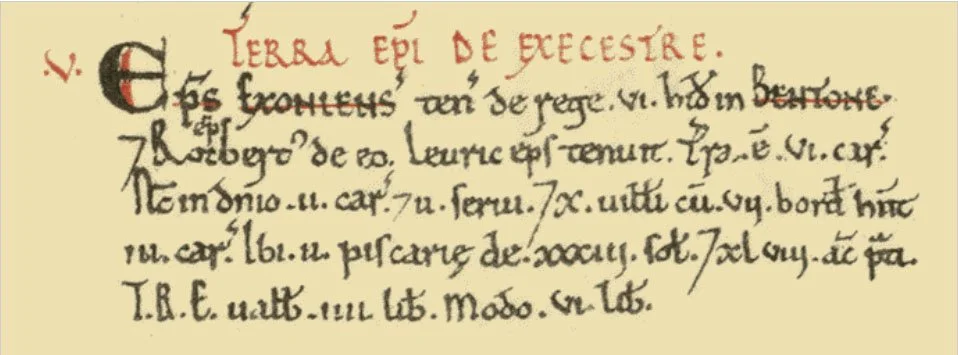 TERRA EP̄I DE EXECESTRE.
.V. EP̄S EXONIENS' ten' de rege. vi. hid̄ in BENTONE.
⁊ Rotbert' ep̄s de eo. Leuric ep̄s tenuit. Tr̄a. ē. vi. car'.
Nc̄ in dn̄io. ii. car'. ⁊ ii. serui. ⁊ x. uiłłi cū. vij. bord̄ hn̄t
iii. car'. Ibi. ii. piscarię de. xxxiij. soł. ⁊ xl viij. ac̄ p̄ti.
T.R.E. uałb. iiii. lib̄. Modo. vi. lib̄.